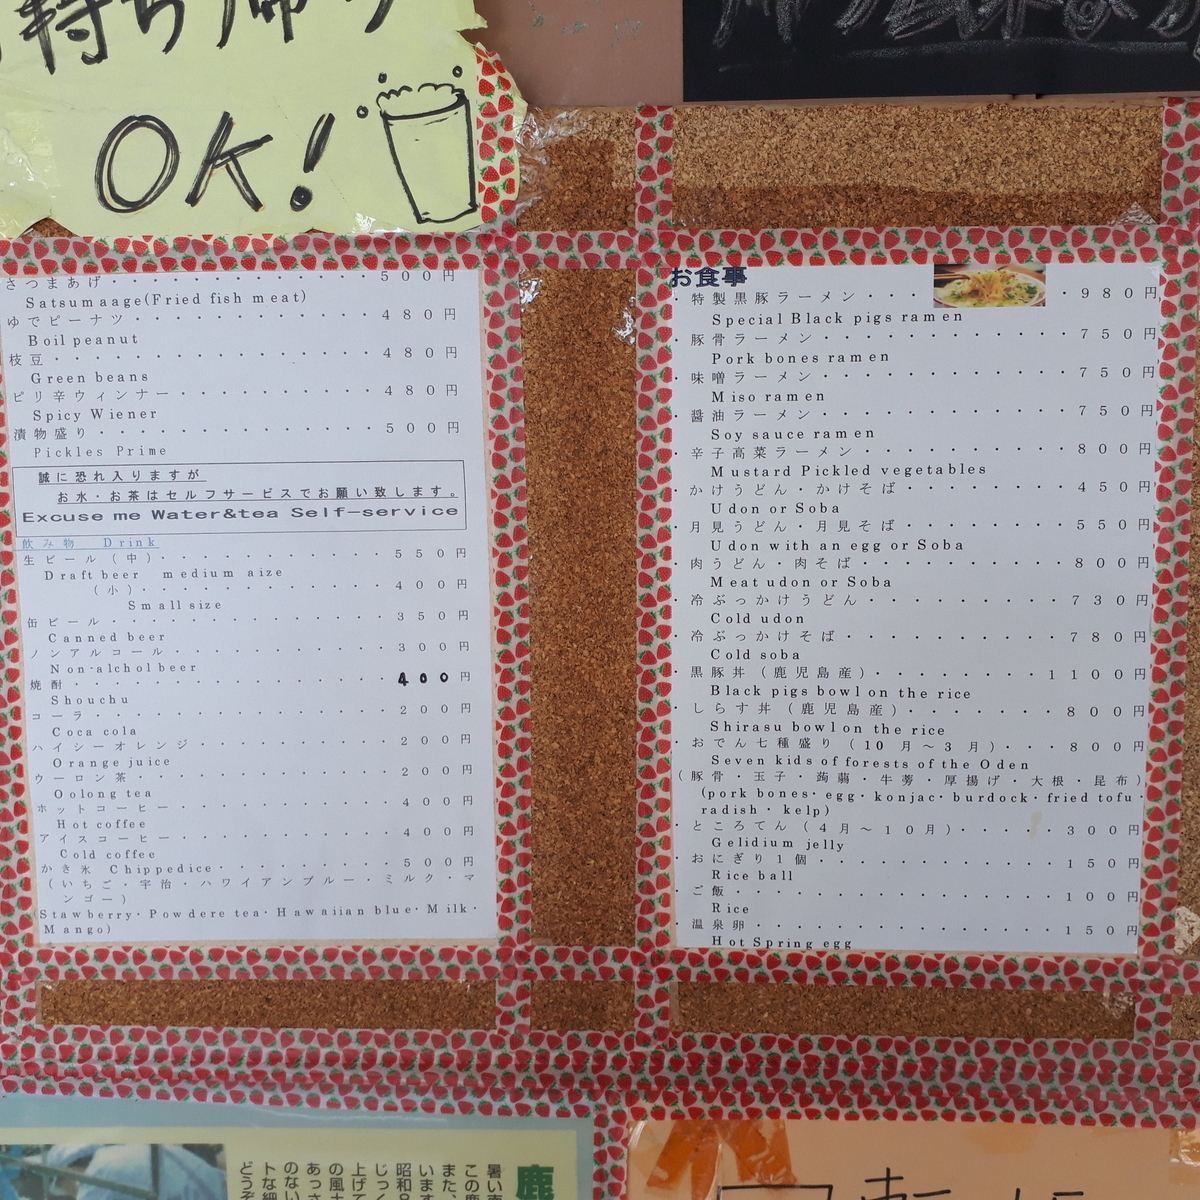 持ち帰り
OK!
さつまあげ・・・・・・・・・・・500円
Satsumaage(Fried fish meat)
ゆでピーナツ・・・・・・・・・・480円
Boil peanut
枝豆・・・・・・・・・・・・・・480円
Green beans
ピリ辛ウィンナー・・・・・・・・480円
Spicy Wiener
漬物盛り・・・・・・・・・・・・500円
Pickles Prime
誠に恐れ入りますが
お水・お茶はセルフサービスでお願い致します。
Excuse me Water&tea Self-service
飲み物 Drink
生ビール(中)・・・・・・・・・・550円
Draft beer medium aize
(小)・・・・・・・・・・400円
Small size
缶ビール・・・・・・・・・・・・350円
Canned beer
ノンアルコール・・・・・・・・・300円
Non-alchol beer
焼酎・・・・・・・・・・・・・・400円
Shouchu
コーラ・・・・・・・・・・・・・200円
Coca cola
ハイシーオレンジ・・・・・・・・200円
Orange juice
ウーロン茶・・・・・・・・・・・200円
Oolong tea
ホットコーヒー・・・・・・・・・400円
Hot coffee
アイスコーヒー・・・・・・・・・400円
Cold coffee
かき氷 Chippedice・・・・・・・・500円
(いちご・宇治・ハワイアンブルー・ミルク・マ
ンゴー)
(Stawberry・Powdere tea・Hawaiian blue・Milk・
Mango)
お食事
・特製黒豚ラーメン・・・・980円
Special Black pigs ramen
・豚骨ラーメン・・・・・・・・・・・・750円
Pork bones ramen
・味噌ラーメン・・・・・・・・・・・・750円
Miso ramen
・醤油ラーメン・・・・・・・・・・・・750円
Soy sauce ramen
・辛子高菜ラーメン・・・・・・・・・・800円
Mustard Pickled vegetables
・かけうどん・かけそば・・・・・・・・450円
Udon or Soba
・月見うどん・月見そば・・・・・・・・550円
Udon with an egg or Soba
・肉うどん・肉そば・・・・・・・・・・800円
Meat udon or Soba
・冷ぶっかけうどん・・・・・・・・・・730円
Cold udon
・冷ぶっかけそば・・・・・・・・・・・780円
Cold soba
・黒豚丼(鹿児島産)・・・・・・・・1100円
Black pigs bowl on the rice
・しらす丼(鹿児島産)・・・・・・・・800円
Shirasu bowl on the rice
・おでん七種盛り(10月~3月)・・・800円
Seven kids of forests of the Oden
(豚骨・玉子・蒟蒻・牛蒡・厚揚げ・大根・昆布)
(pork bones・egg・konjac・burdock・fried tofu・
radish・kelp)
・ところてん(4月~10月)・・・・・300円
Gelidium jelly
・おにぎり1個・・・・・・・・・・・・150円
Rice ball
・ご飯・・・・・・・・・・・・・・・・100円
Rice
・温泉卵・・・・・・・・・・・・・・・150円
Hot Spring egg